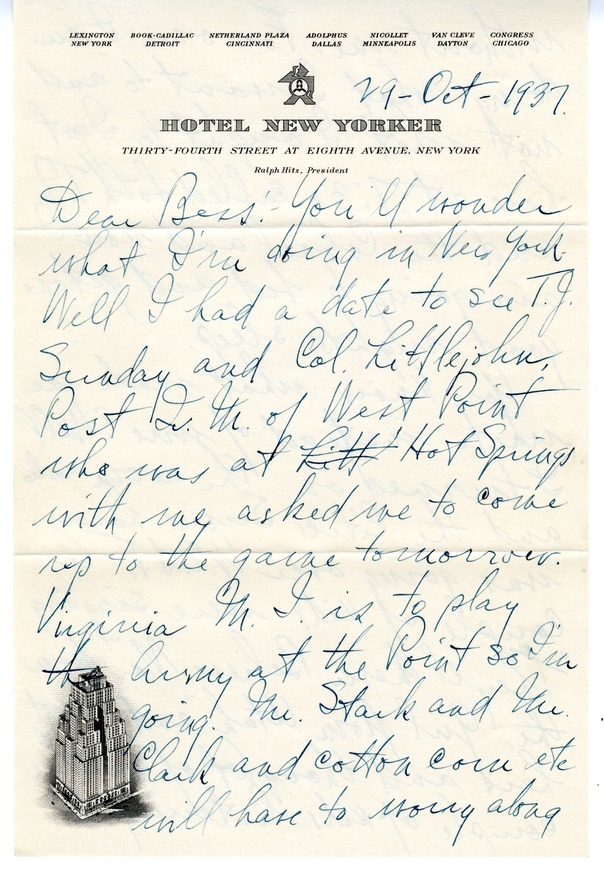 LEXINGTON BOOK-CADILLAC NETHERLAND PLAZA ADOLPHUS NICOLLET VAN CLEVE CONGRESS
NEW YORK DETROIT CINCINNATI DALLAS MINNEAPOLIS DAYTON CHICAGO
29-Oct-1937.
HOTEL NEW YORKER
THIRTY-FOURTH STREET AT EIGHTH AVENUE, NEW YORK
Ralph Hitz, President
Dear Bess:- You'll wonder
what I'm doing in New York.
Well I had a date to see T.J.
Sunday and Col. Littlejohn,
Post Q. M. of West Point
who was at Litt Hot Springs
with me, asked me to come
up to the game tomorrow.
Virginia M. I. is to play
th Army at the Point so I'm
going. Mr. Stark and Mr.
Clark and cotton corn etc
will have to worry along